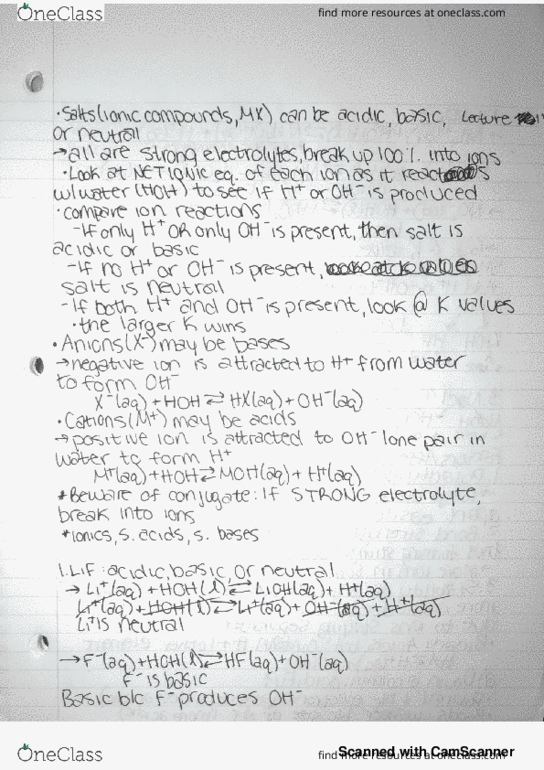 OneClass
find more resources at oneclass.com
·Salts(ionic compounds, MX) can be acidic, basic, Lecture
or neutral
→all are strong electrolytes, break up 100%. into ions
·Look at NET IONIC eq. of each ion as it reacts
w/water (HOH) to see if H⁺ or OH⁻ is produced
·compare ion reactions
-If only H⁺ OR only OH⁻ is present, then salt is
acidic or basic
-If no H⁺ or OH⁻ is present,
salt is neutral
-If both H⁺ and OH⁻ is present, look @ K values
·the larger K wins
·Anions(X⁻) may be bases
→negative ion is attracted to H⁺ from water
to form OH⁻
X⁻(aq) + HOH ⇌ HX(aq) + OH⁻(aq)
·Cations(M⁺) may be acids
→positive ion is attracted to OH⁻ lone pair in
water to form H⁺
M⁺(aq) + HOH ⇌ MOH(aq) + H⁺(aq)
*Beware of conjugate: If STRONG electrolyte,
break into ions
*ionics, s. acids, s. bases
1. LiF: acidic, basic, or neutral
→ Li⁺(aq) + HOH(l) ⇌ LiOH(aq) + H⁺(aq)
Li⁺(aq) + HOH(l) ⇌ Li⁺(aq) + OH⁻(aq) + H⁺(aq)
Li⁺ is neutral
→ F⁻(aq) + HOH(l) ⇌ HF(aq) + OH⁻(aq)
F⁻ is basic
Basic b/c F⁻ produces OH⁻
OneClass
find more resources at oneclass.com
Scanned with CamScanner